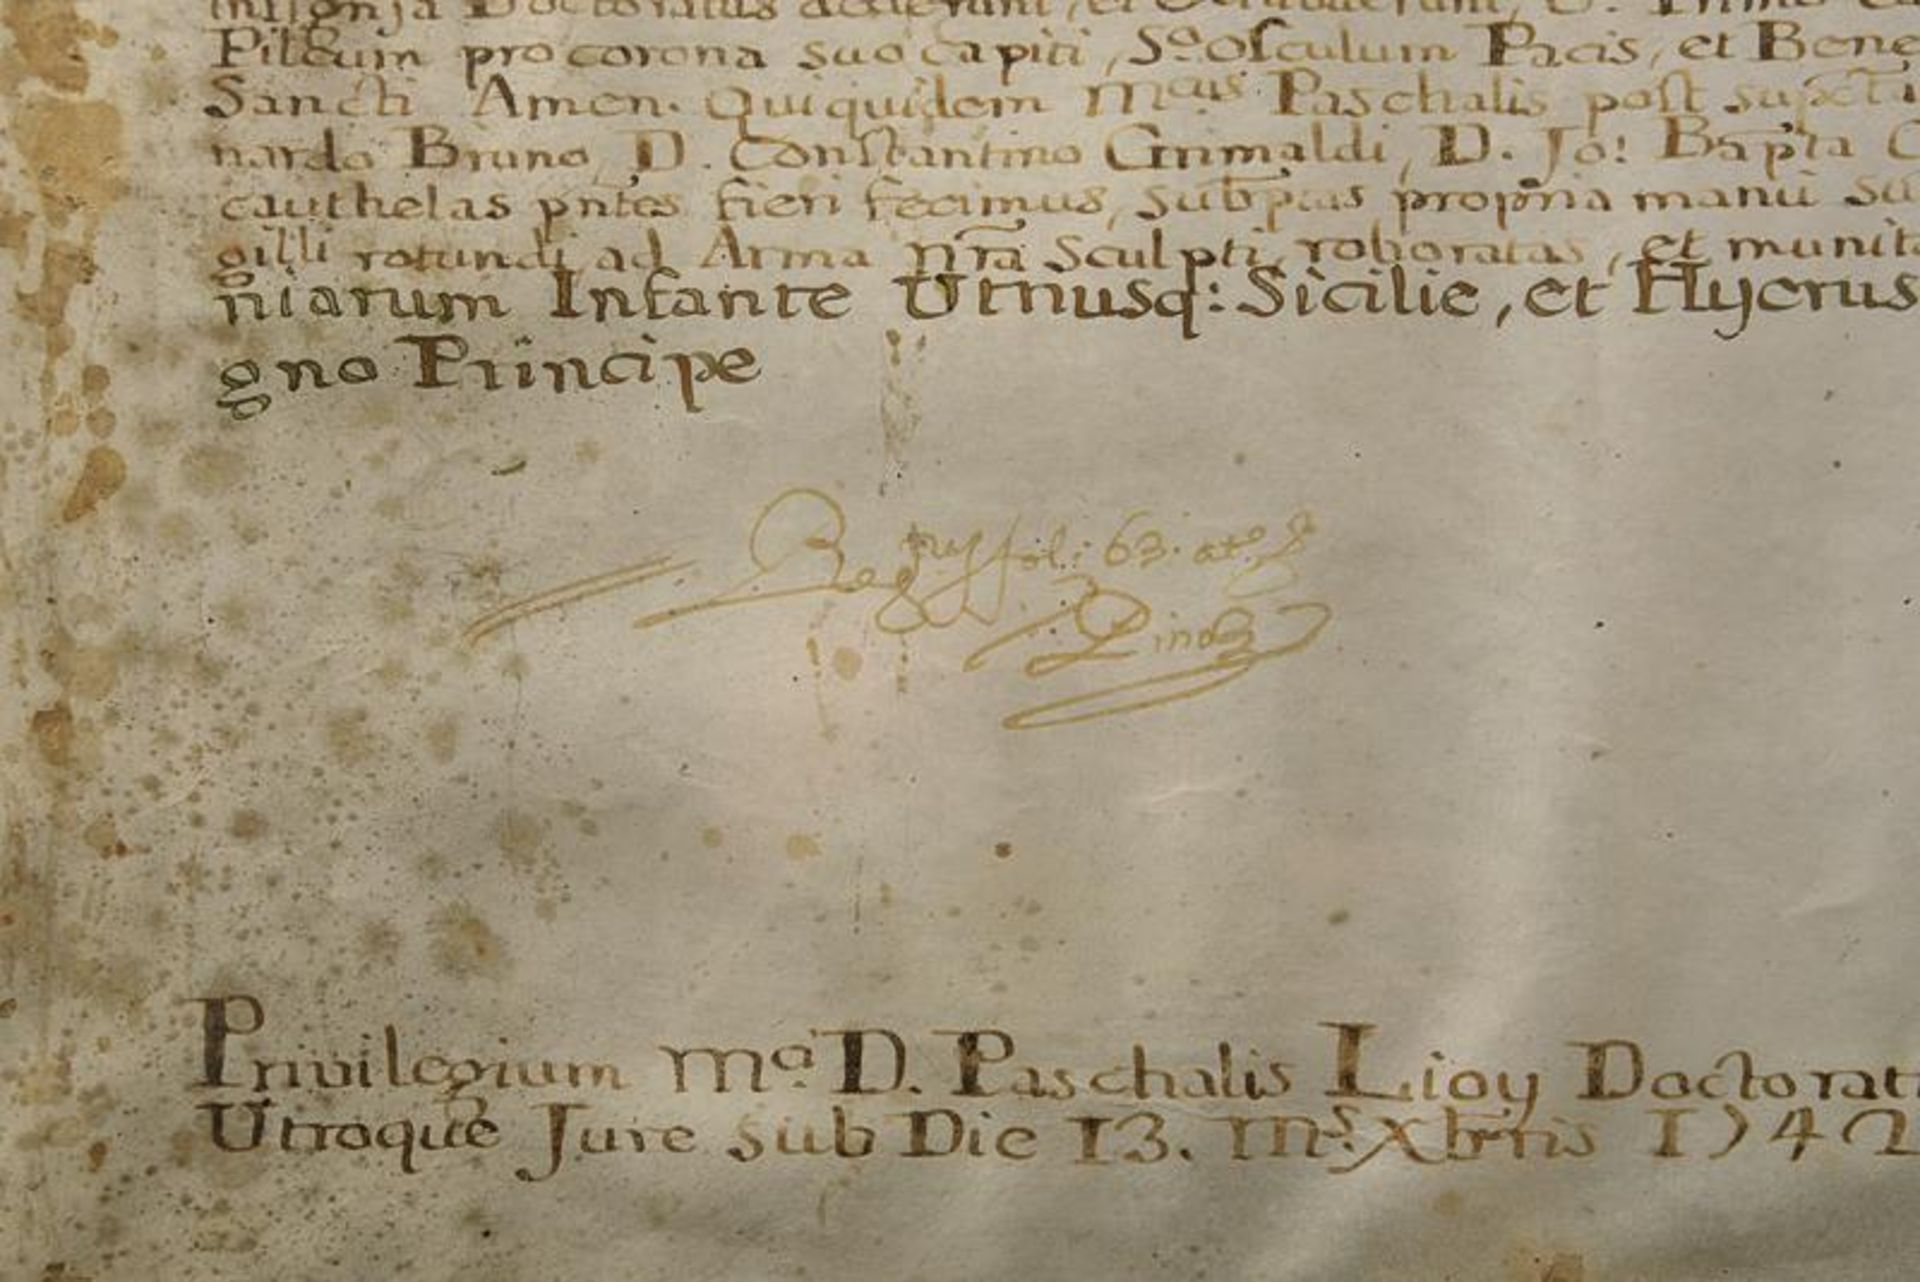 insignia Doctoratus dederunt, et
Pileum pro corona suo capiti, So. Osculum Pacis, et Bene
Sancti Amen. Qui quidem Mcus Paschalis post
nardo Bruno, D. Constantino Grimaldi, D. Jo: Bapta
cauthelas pntes fieri fecimus, propria manu
gilli rotundi ad Arma nra Sculpti, roboratas, et munita
niarum Infante Utriusq: Sicilie, et Hyerus
gno Principe
fol: 63. ato
Privilegium Mci D. Paschalis Lioy Doctorat
Utroque Jure sub Die 13. Ms. Xbris 1742